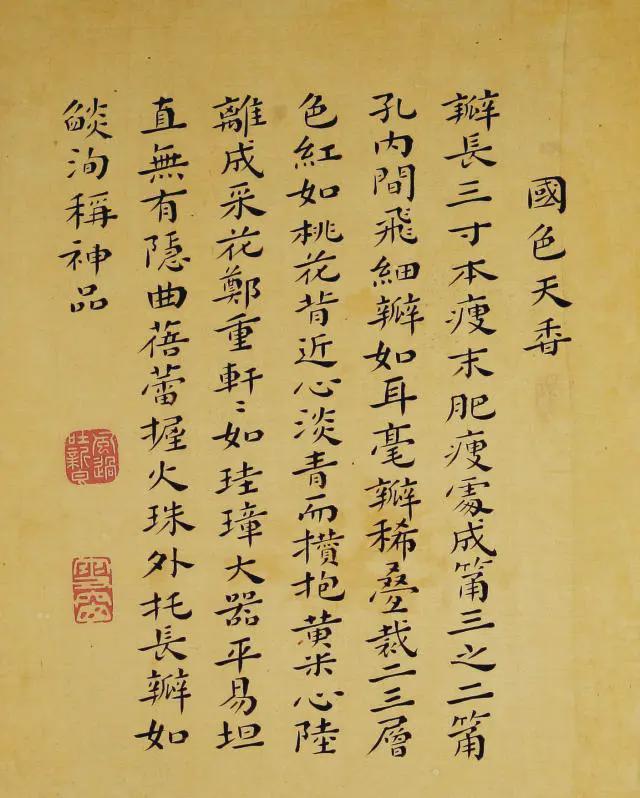 國色天香
瓣長三寸本瘦末肥瘦處成筩三之二筩
孔内間飛細瓣如耳毫瓣稀疊裁二三層
色紅如桃花背近心淡青而攢抱黄米心陸
離成采花鄭重軒〻如珪璋大器平易坦
直無有隱曲蓓蕾握火珠外托長瓣如
燄洵稱神品